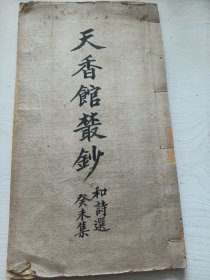 天香館叢鈔
和詩選
癸未集